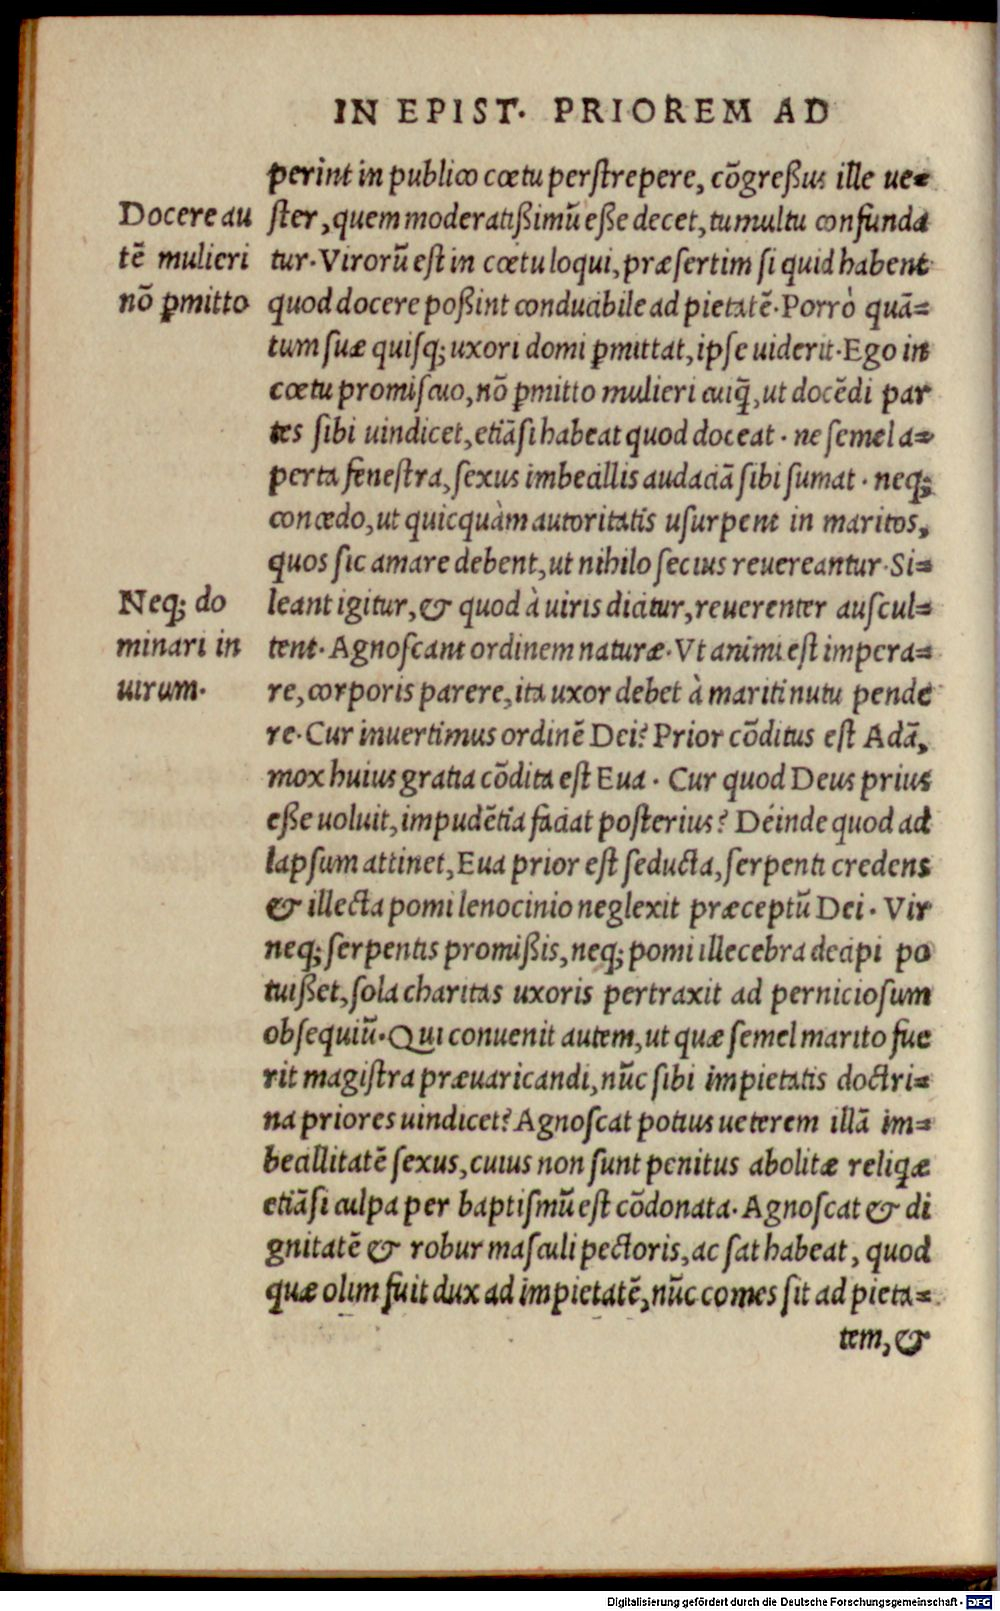 IN EPIST. PRIOREM AD
perint in publico cœtu perstrepere, cõgreßus ille ue-
ster, quem moderatißimũ eße decet, tumultu confunda
tur. Virorũ est in cœtu loqui, præsertim si quid habent
quod docere poßint conducibile ad pietatẽ. Porrò quã=
tum suæ quisq; uxori domi ꝑmittat, ipse uiderit. Ego in
cœtu promiscuo, nõ ꝑmitto mulieri cuiq̃, ut docẽdi par
tes sibi uindicet, etiãsi habeat quod doceat. ne semel a=
perta fenestra, sexus imbecillis audaciã sibi sumat. neq;
concedo, ut quicquàm autoritatis usurpent in maritos,
quos sic amare debent, ut nihilo secius reuereantur. Si=
leant igitur, & quod à uiris dicitur, reuerenter auscul=
tent. Agnoscant ordinem naturæ. Vt animi est impera=
re, corporis parere, ita uxor debet à mariti nutu pende
re. Cur inuertimus ordinẽ Dei? Prior cõditus est Adã,
mox huius gratia cõdita est Eua. Cur quod Deus prius
eße uoluit, impudẽtia faciat posterius? Déinde quod ad
lapsum attinet, Eua prior est seducta, serpenti credens
& illecta pomi lenocinio neglexit præceptũ Dei. Vir
neq; serpentis promißis, neq; pomi illecebra decipi po
tuißet, sola charitas uxoris pertraxit ad perniciosum
obsequiũ. Qui conuenit autem, ut quæ semel marito fue
rit magistra præuaricandi, nũc sibi impietatis doctri=
na priores uindicet? Agnoscat potius ueterem illã im=
becillitatẽ sexus, cuius non sunt penitus abolitæ reliq̃æ
etiãsi culpa per baptismũ est cõdonata. Agnoscat & di
gnitatẽ & robur masculi pectoris, ac sat habeat, quod
quæ olim fuit dux ad impietatẽ, nũc comes sit ad pieta=
tem, &
Docere au
tẽ mulieri
nõ ꝑmitto
Neq; do
minari in
uirum.
Digitalisierung gefördert durch die Deutsche Forschungsgemeinschaft - DFG